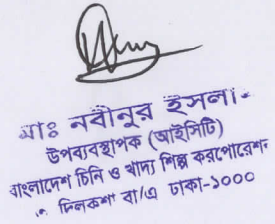 মোঃ নবীনুর ইসলাম
উপব্যবস্থাপক (আইসিটি)
বাংলাদেশ চিনি ও খাদ্য শিল্প করপোরেশন
দিলকুশা বা/এ ঢাকা-১০০০